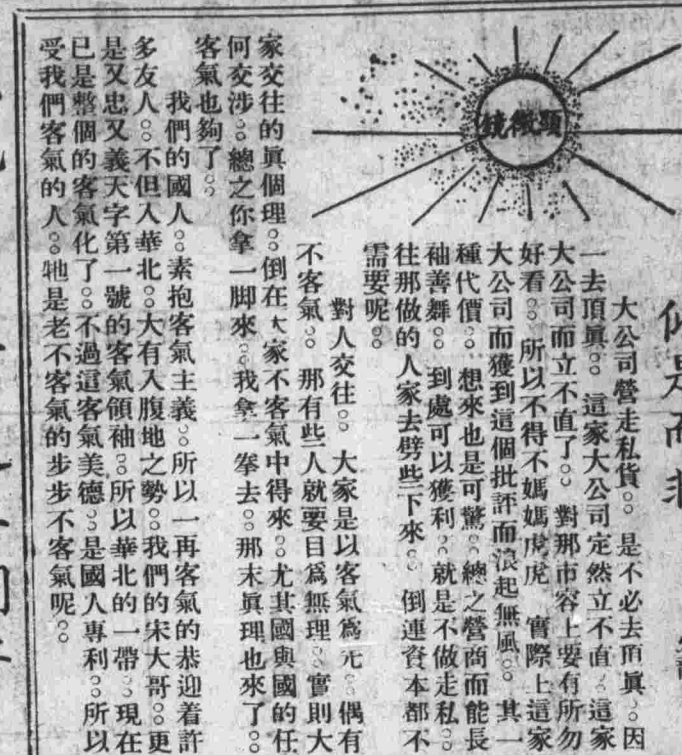 顯微鏡
似是而非
大公司營走私貨。是不必去頂眞。因
一去頂眞。這家大公司定然立不直。這家
大公司而立不直了。對那市容上要有所勿
好看。所以不得不媽媽虎虎　實際上這家
大公司而獲到這個批評而浪起無風。其一
種代價。想來也是可驚。總之營商而能長
袖善舞。到處可以獲利。就是不做走私。
往那做的人家去劈些下來。倒連資本都不
需要呢。
對人交往。大家是以客氣爲元。偶有
不客氣。那有些人就要目爲無理。實則大
家交往的眞個理。倒在大家不客氣中得來。尤其國與國的任
何交涉。總之你拿一脚來。我拿一拳去。那末眞理也來了。
客氣也夠了。
我們的國人。素抱客氣主義。所以一再客氣的恭迎着許
多友人。不但入華北。大有入腹地之勢。我們的宋大哥。更
是又忠又義天字第一號的客氣領袖。所以華北的一帶。現在
已是整個的客氣化了。不過這客氣美德。是國人專利。所以
受我們客氣的人。牠是老不客氣的步步不客氣呢。